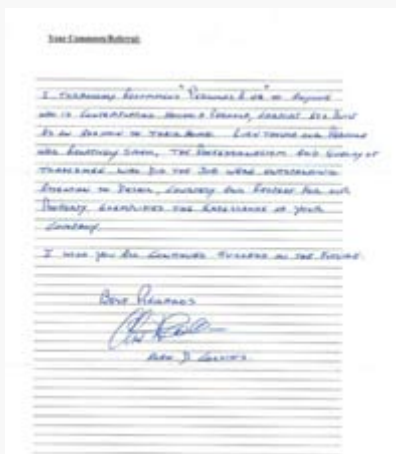 Your Comment/Referral:
I thoroughly recommend "Pergolas R Us" to anyone
who is contemplating having a Pergola, Carport etc built
as an addition to their home. Even though our Pergola
was relatively small, the professionalism and quality of
tradesmen who did the job were outstanding
attention to detail, courtesy and respect for our
property exemplifies the excellence of your
company.
I wish you all continued success in the future.
Best Regards